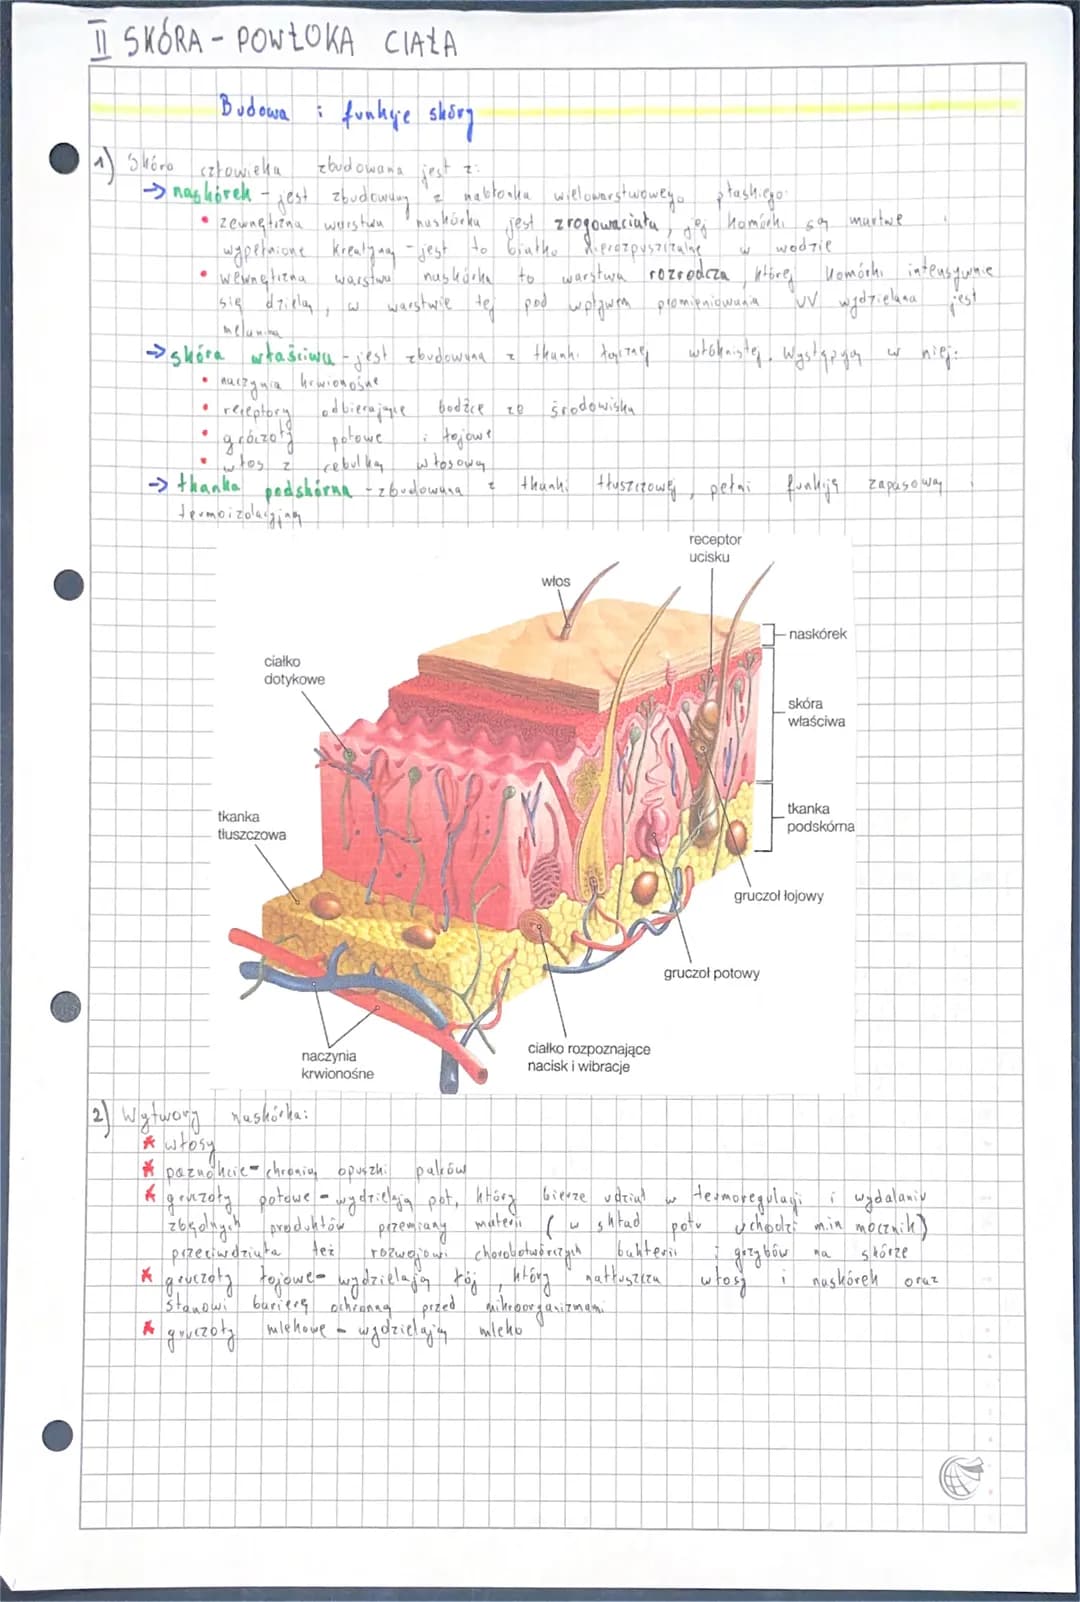 II SKÓRA - POWŁOKA CIAŁA
Budowa i funkcje skóry
1) Skóra człowieka zbudowana jest z:
→ naskórek - jest zbudowany z nabłonka wielowarstwowego płaskiego:
• zewnętrzna warstwa naskórka jest zrogowaciała, jej komórki są martwe
wypełnione kreatyną - jest to białko nierozpuszczalne w wodzie
• wewnętrzna warstwa naskórka to warstwa rozrodcza, której komórki intensywnie
się dzielą, w warstwie tej pod wpływem promieniowania UV wydzielana jest
melanina
→ skóra właściwa - jest zbudowana z tkanki łącznej włóknistej. Występują w niej:
• naczynia krwionośne
• receptory odbierające bodźce ze środowiska
• gróczoły potowe i łojowe
• włos z cebulką włosową
→ tkanka podskórna - zbudowana z tkanki tłuszczowej, pełni funkcję zapasową i
termoizolacyjną
receptor
ucisku
włos
naskórek
ciałko
dotykowe
skóra
właściwa
tkanka
podskórna
tkanka
tłuszczowa
gruczoł łojowy
gruczoł potowy
ciałko rozpoznające
nacisk i wibracje
naczynia
krwionośne
2) Wytwory naskórka:
* włosy
* paznokcie - chronią opuszki palców
* gruczoły potowe - wydzielają pot, który bierze udział w termoregulacji i wydalaniu
zbędnych produktów przemiany materii (w skład potu wchodzi min mocznik)
przeciwdziała też rozwojowi chorobotwórczych bakterii i grzybów na skórze
* gruczoły łojowe - wydzielają łój, który natłuszcza włosy i naskórek oraz
stanowi barierę ochronną przed mikroorganizmami
* gruczoły mlekowe - wydzielają mleko